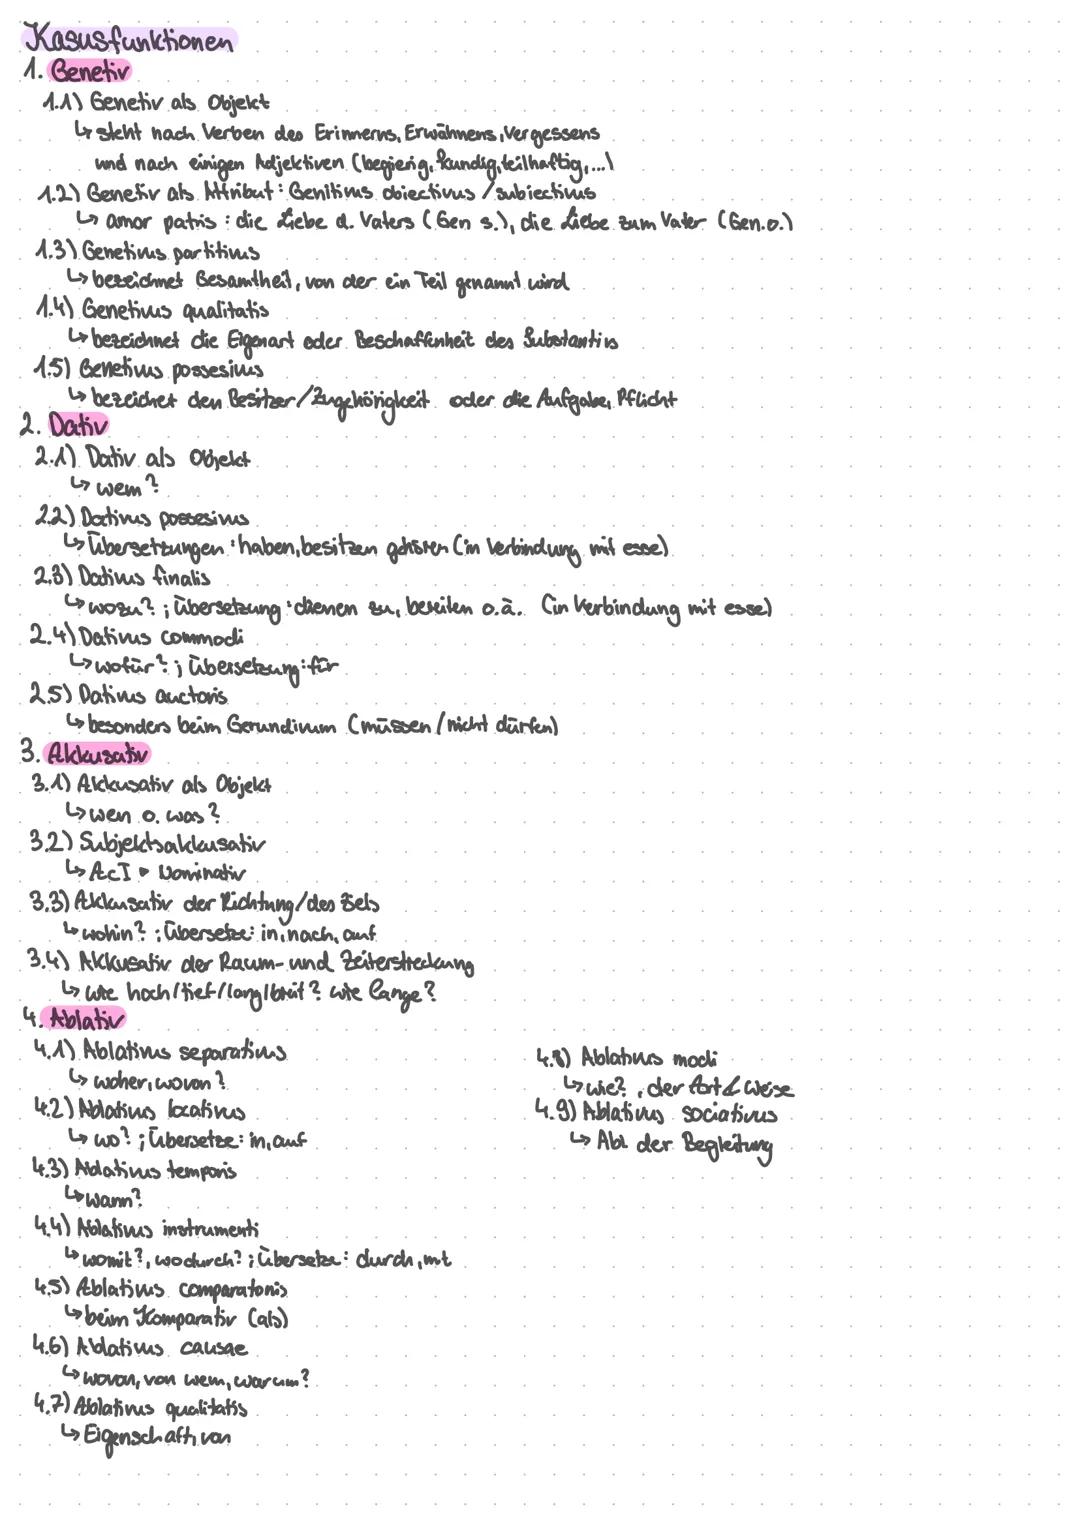 Kasusfunktionen
1. Genetiv
1.1) Genetiv als Objekt
↳ steht nach Verben des Erinnerns, Erwähnens, Vergessens
und nach einigen Adjektiven (begierig, kundig, teilhaftig, ...)
1.2) Genetiv als Attribut: Genitivus obiectivus / subiectivus
↳ amor patris : die Liebe d. Vaters (Gen s.), die Liebe zum Vater (Gen.o.)
1.3) Genetivus partitivus
↳ bezeichnet Gesamtheit, von der ein Teil genannt wird
1.4) Genetivus qualitatis
↳ bezeichnet die Eigenart oder Beschaffenheit des Substantivs
1.5) Genetivus possesivus
↳ bezeichet den Besitzer/Zugehörigkeit oder die Aufgabe, Pflicht
2. Dativ
2.1) Dativ als Objekt
↳ wem?
2.2) Dativus possesivus
↳ Übersetzungen : haben, besitzen gehören (in Verbindung mit esse)
2.3) Dativus finalis
↳ wozu? ; Übersetzung : dienen zu, bereiten o.ä. (in Verbindung mit esse)
2.4) Dativus commodi
↳ wofür? ; Übersetzung : für
2.5) Dativus auctoris
↳ besonders beim Gerundivum (müssen / nicht dürfen)
3. Akkusativ
3.1) Akkusativ als Objekt
↳ wen o. was?
3.2) Subjektsakkusativ
↳ AcI ▸ Nominativ
3.3) Akkusativ der Richtung/des Ziels
↳ wohin? ; Übersetze: in, nach, auf
3.4) Akkusativ der Raum- und Zeiterstreckung
↳ wie hoch/tief/lang/breit? wie lange?
4. Ablativ
4.1) Ablativus separativus
↳ woher, wovon?
4.2) Ablativus locativus
↳ wo? ; Übersetze: in, auf
4.3) Ablativus temporis
↳ wann?
4.4) Ablativus instrumenti
↳ womit?, wodurch? ; Übersetze: durch, mit
4.5) Ablativus comparationis
↳ beim Komparativ (als)
4.6) Ablativus causae
↳ wovon, von wem, warum?
4.7) Ablativus qualitatis
↳ Eigenschaft, von
4.8) Ablativus modi
↳ wie? , der Art & Weise
4.9) Ablativus sociativus
↳ Abl. der Begleitung